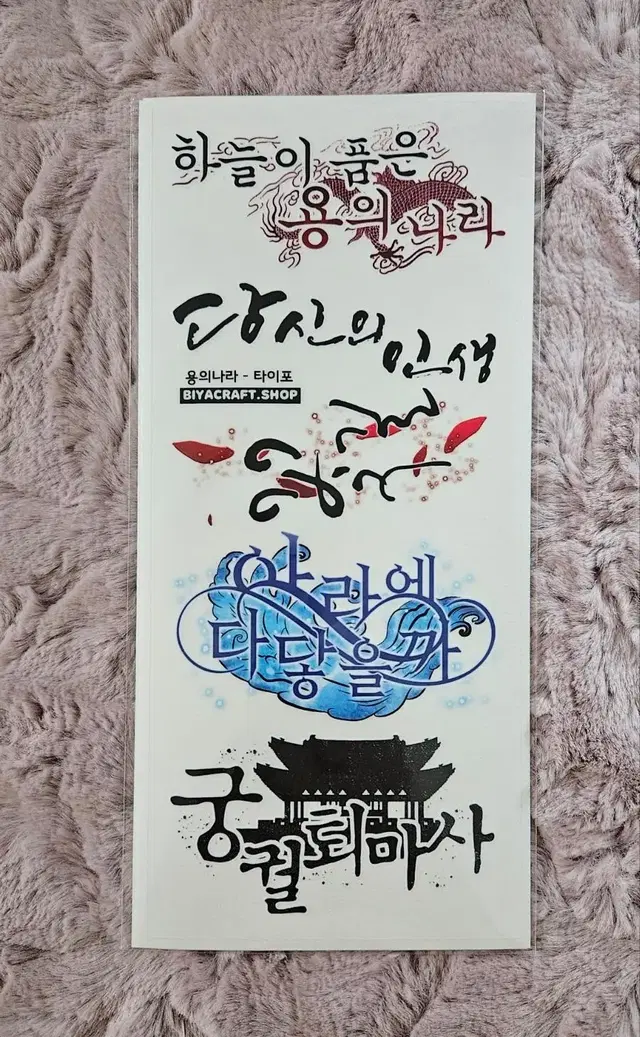 하늘이 품은
용의 나라
당신의 인생
용의나라 - 타이포
BIYACRAFT.SHOP
아라에
다 닿을까
궁궐퇴마사